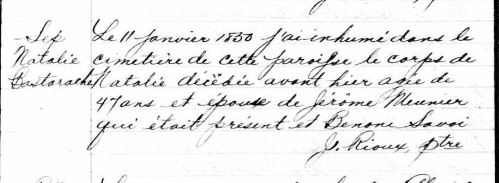 Sep Le 11 janvier 1850 j'ai inhumé dans le
Natalie cimetière de cette paroisse le corps de
Bastarache Natalie décédée avant hier agée de
47 ans et epouse de Jérôme Meunier
qui était présent et Benoni Savoi
J. Rioux, ptre